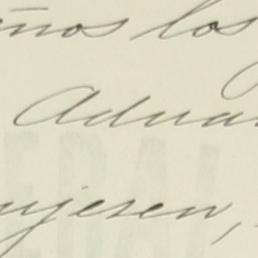 ños los
Adua
ujesen,